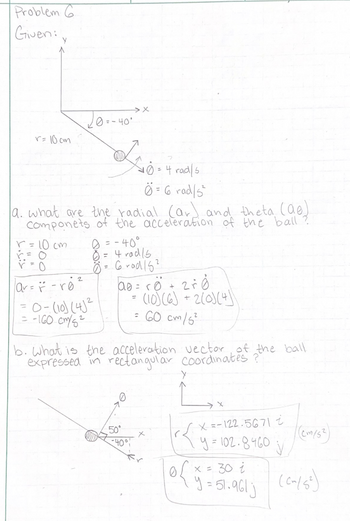 Problem 6
Given:
y
x
Ø = -40°
r = 10 cm
Ø̇ = 4 rad/s
Ø̈ = 6 rad/s²
a. what are the radial (ar) and theta (aθ)
componets of the acceleration of the ball?
r = 10 cm Ø = -40°
ṙ = 0 Ø̇ = 4 rad/s
r̈ = 0 Ø̈ = 6 rad/s²
ar = r̈ - rØ̇² aØ = rØ̈ + 2ṙØ̇
= 0 - (10)(4)² = (10)(6) + 2(0)(4)
= -160 cm/s² = 60 cm/s²
b. What is the acceleration vector of the ball
expressed in rectangular coordinates?
y
x
Ø
50°
-40°
x
r
r { x = -122.5671 i
y = 102.8460 j (cm/s²)
Ø { x = 30 i
y = 51.961 j (cm/s²)